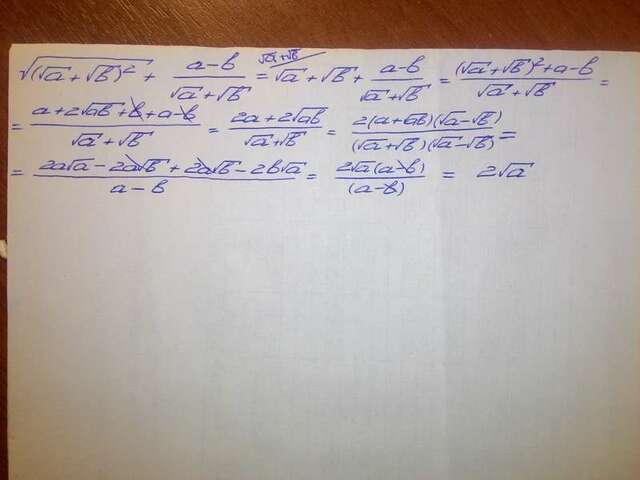 √(√a + √b)² + (a-b)/(√a + √b) = √a + √b + (a-b)/(√a + √b) = ((√a + √b)² + a - b)/(√a + √b) =
= (a + 2√ab + b + a - b)/(√a + √b) = (2a + 2√ab)/(√a + √b) = 2(a + √ab)(√a - √b)/((√a + √b)(√a - √b)) =
= (2a√a - 2a√b + 2a√b - 2b√a)/(a - b) = 2√a(a - b)/(a - b) = 2√a